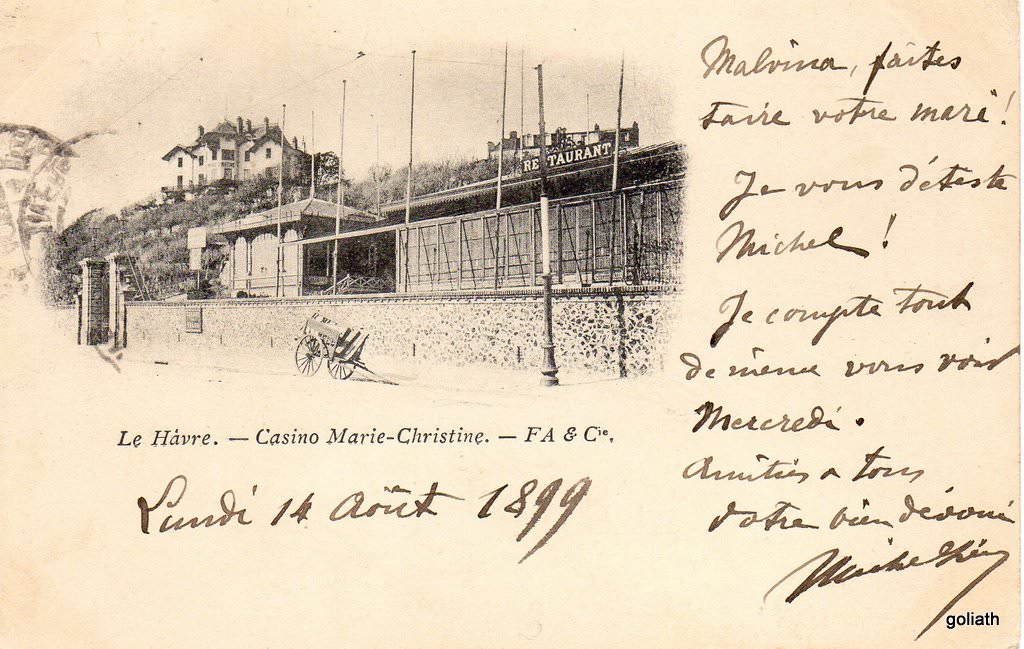 RESTAURANT
Le Hâvre. — Casino Marie-Christine. — FA & Cie.
Lundi 14 Août 1899
Malvina, faites
taire votre mari !
Je vous déteste
Michel !
Je compte tout
de même vous voir
Mercredi.
Amitiés a tous
Votre bien dévoué
Michel
goliath